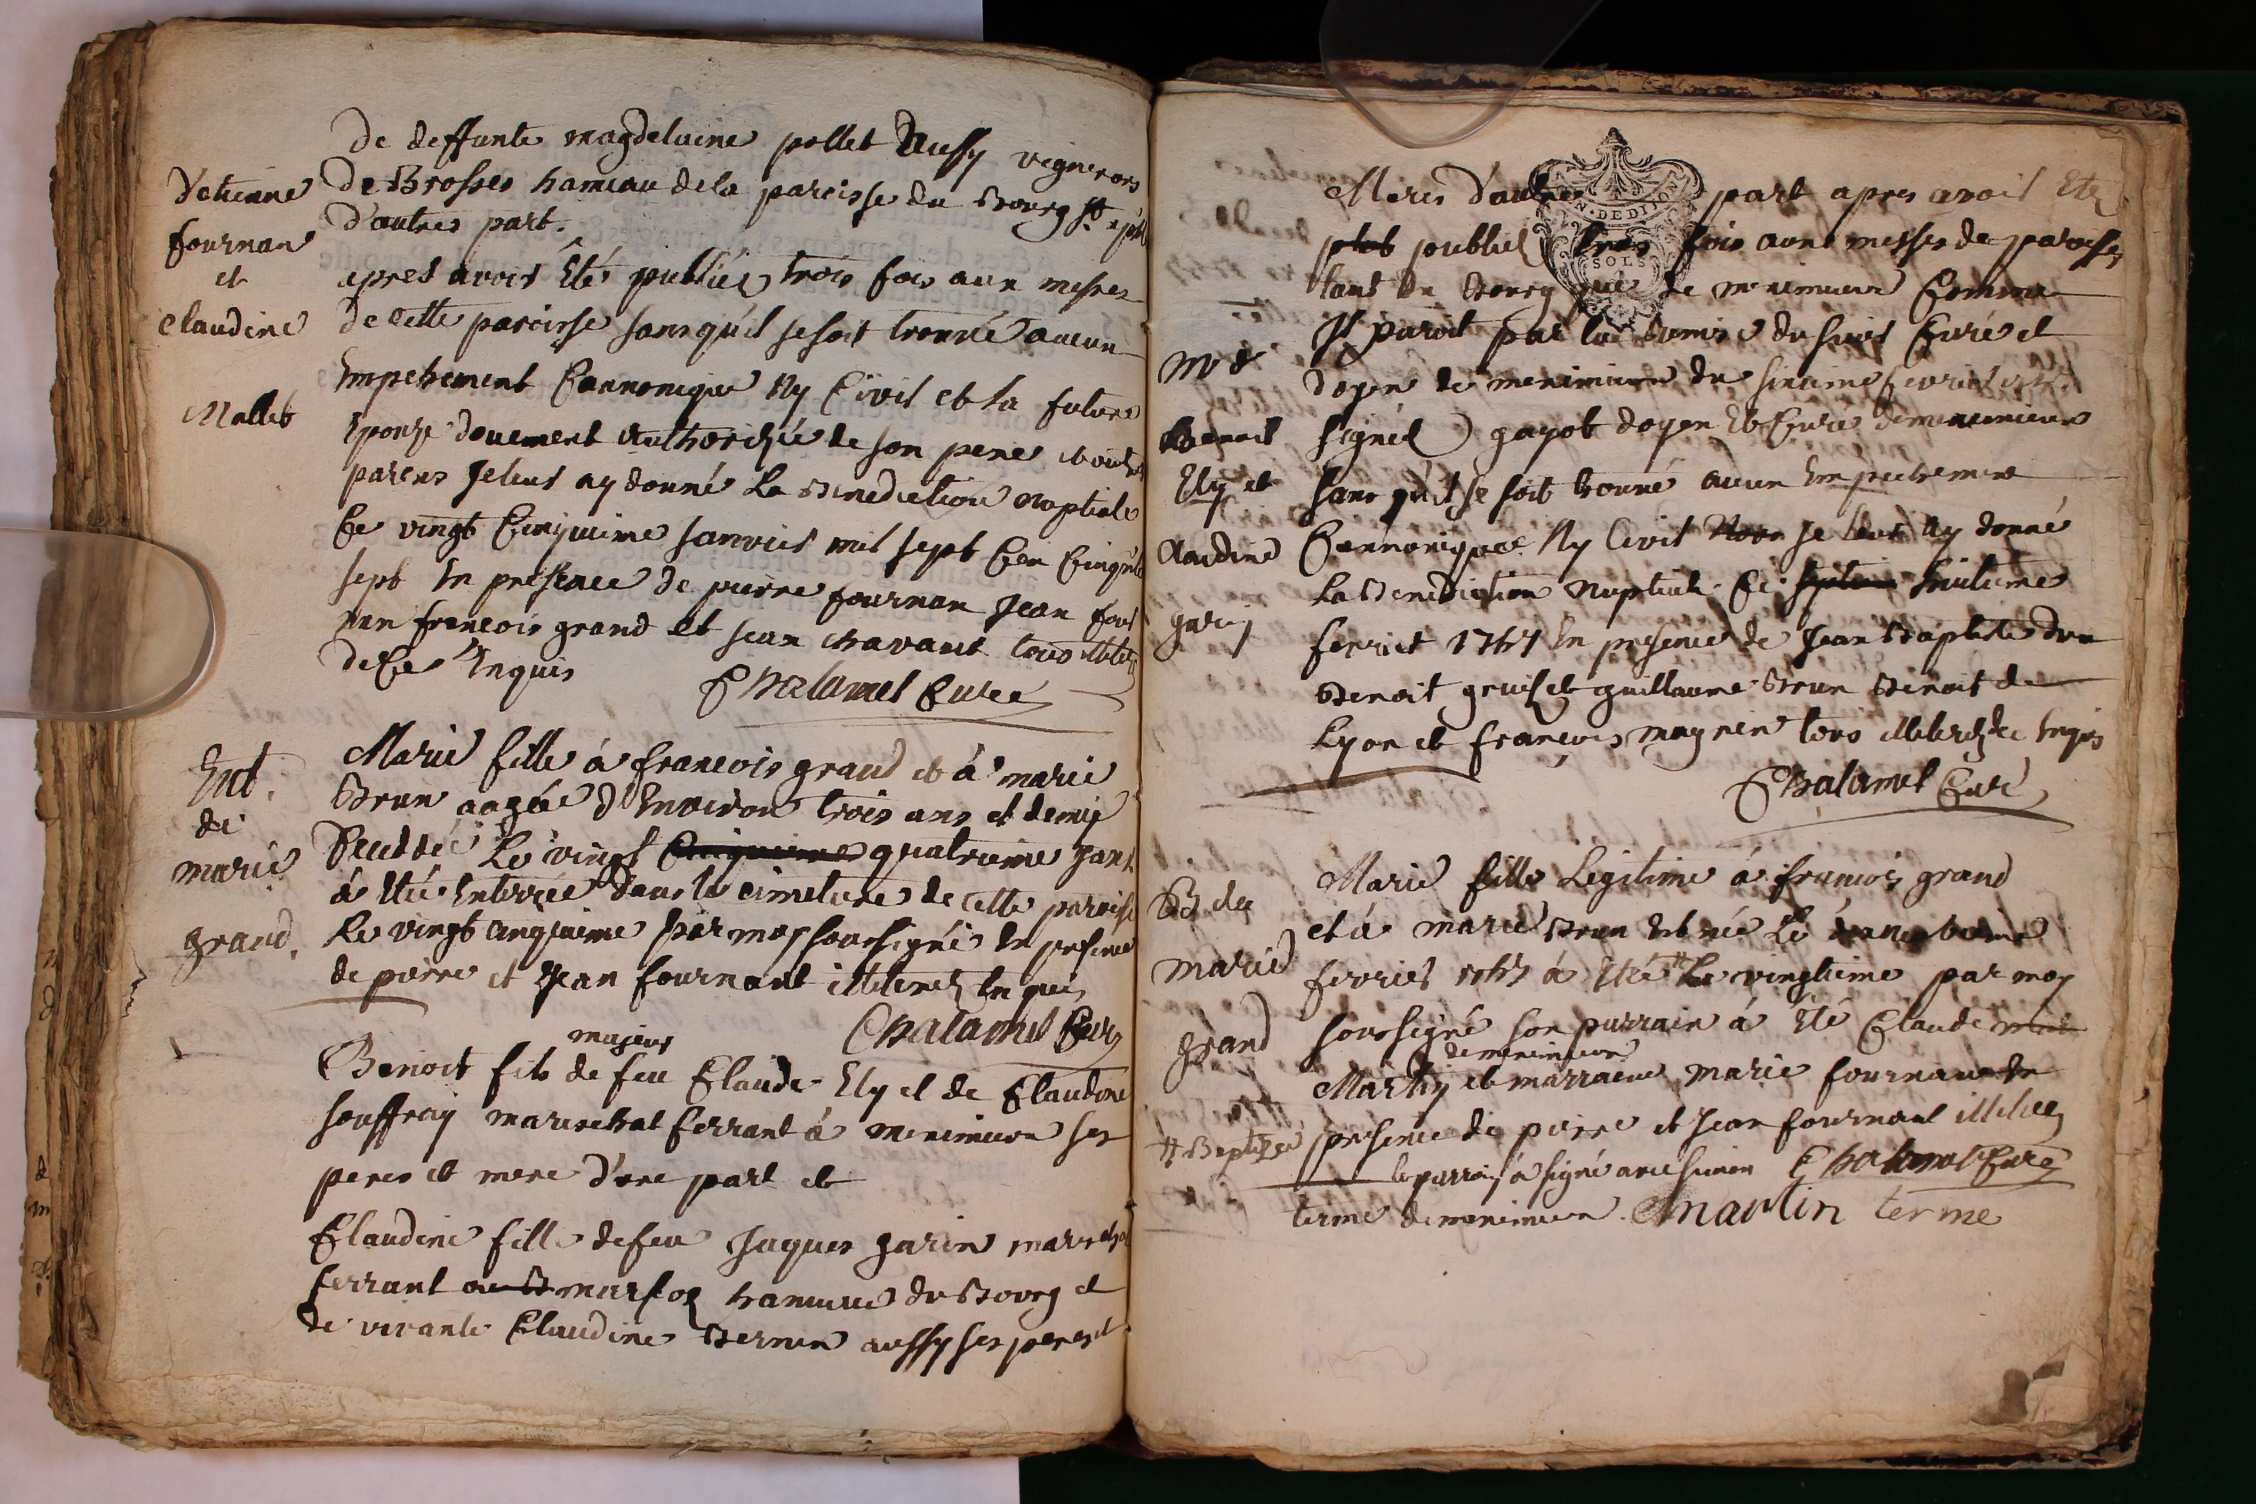 de deffunte magdelaine pollet Aussy vignerons
d'etienne
de Brosses hameau de la paroisse du Bourg St
d'autres part.
fournan
et
apres avoir Eté publiéz trois fois aux messes
claudine
de cette paroisse sans qu'il se soit trouvé aucun
Empechement Cannonique Ny Civil et la future
Mallet
Epouze douement Authorizée de son pere
parens Je leur ay donné La Benediction nuptiale
Ce vingt Cinquieme janvier mil sept Cen Cinq
sept En presence de pierre fournan Jean
francois grand et jean chavant tous
de Ce Enquis
Chalamel Curé
Ent.
de
marie
grand.
Marie fille à francois grand et à marie
Brun aagée d'Environ trois ans et demy
Deceddée Le vingt Cinquieme quatrieme janv
à Eté Enterrée dans le cimetiere de cette paroisse
Le vingt cinquieme par moy soussigné En presence
de pierre et Jean fournant illiterez Enquis
Chalamel Curé
majeur
Benoit fils de feu Claude Ely et de Claudine
souffray mareschal ferrant à menimieux ses
peres et mere d'une part et
Claudine fille de feu Jaques garin mareschal
ferrant au B marfoz hameau du Bourg et
de vivante Claudine Bernin aussy ses peres et
Meres d'autre part apres avoir Eté
plub publiez trois fois aux messes de paroisse
tant du Bourg que de menimieux Comme
Il paroit par la Remise du sieur Curé et
doyen de menimieux du sixieme fevrier
signéz) gayot doyen Et Curé de menimieux
sans qu'il se soit trouvé aucun Empechement
Cannonique Ny Civil Nous Je leur Ay donné
La Benediction Nuptiale Ce septieme huitieme
fevrier 1757 En presence de Jean Baptiste
Benoit gruis et guillaume Brun Benoit de
Lyon et françois magnin tous illiterez de Enquis
Chalamel Curé
Benoit
Ely et
Claudine
garin
B de
marie
grand
Marie fille Legitime à francois grand
et à marie Brun Est née Le
fevrier 1757 à Eté # Le vingtieme par moy
soussigné son parrain à Eté Claude
de menimieux
Martin et marraine marie fournan En
# Baptizée
presence de pierre et Jean fournant illiterez
le parrain à signé avec simon Chalamel Curé
terme de menimieux Cmartin terme